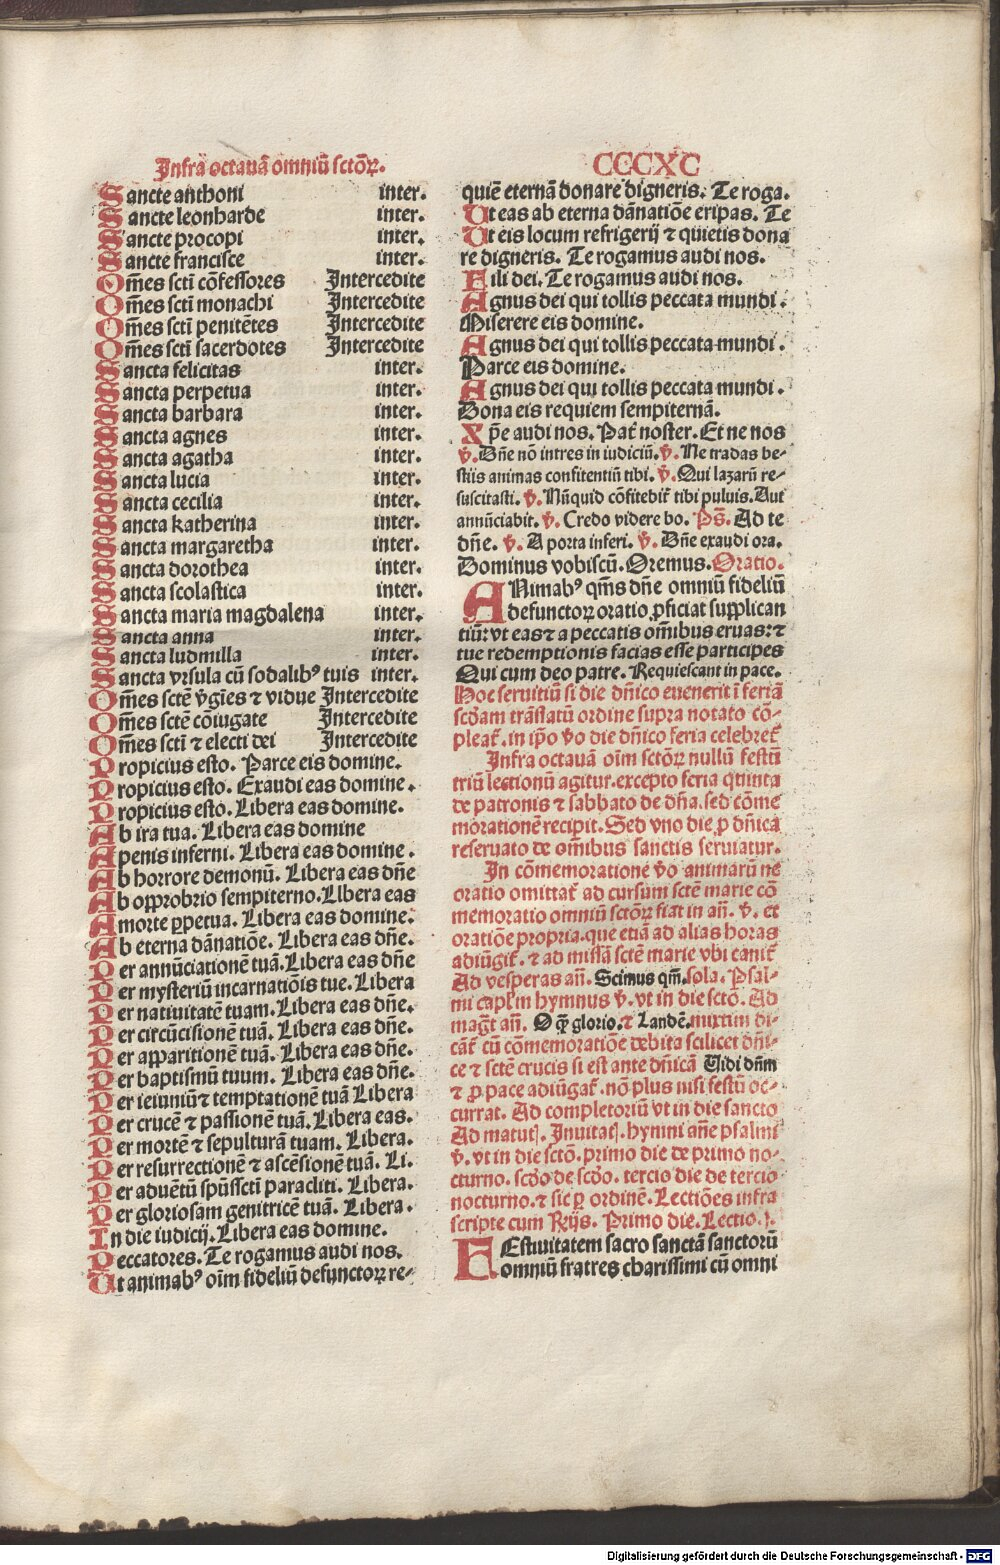 Infrā octauā omniū sctōꝝ.
CCCXC
Sancte anthoni inter.
Sancte leonharde inter.
Sancte procopi inter.
Sancte francisce inter.
Om̄es scti cōfessores Intercedite
Om̄es scti monachi Intercedite
Om̄es scti penitētes Intercedite
Om̄es scti sacerdotes Intercedite
Sancta felicitas inter.
Sancta perpetua inter.
Sancta barbara inter.
Sancta agnes inter.
Sancta agatha inter.
Sancta lucia inter.
Sancta cecilia inter.
Sancta katherina inter.
Sancta margaretha inter.
Sancta dorothea inter.
Sancta scolastica inter.
Sancta maria magdalena inter.
Sancta anna inter.
Sancta ludmilla inter.
Sancta vrsula cū sodalibꝰ tuis inter.
Om̄es sctē v̄gīes ⁊ vidue Intercedite
Om̄es sctē cōiugate Intercedite
Om̄es scti ⁊ electi dei Intercedite
Propicius esto. Parce eis domine.
Propicius esto. Exaudi eas domine.
Propicius esto. Libera eas domine.
Ab ira tua. Libera eas domine
A penis inferni. Libera eas domine.
Ab horrore demonū. Libera eas dn̄e
Ab opprobrio sempiterno. Libera eas
A morte ꝑpetua. Libera eas domine.
Ab eterna dānatiōe. Libera eas dn̄e.
Per annūciationē tuā. Libera eas dn̄e
Per mysteriū incarnatiōis tue. Libera
Per natiuitatē tuam. Libera eas dn̄e.
Per circūcisionē tuā. Libera eas dn̄e.
Per apparitionē tuā. Libera eas dn̄e.
Per baptismū tuum. Libera eas dn̄e.
Per ieiuniū ⁊ temptationē tuā Libera
Per crucē ⁊ passionē tuā. Libera eas.
Per mortē ⁊ sepulturā tuam. Libera.
Per resurrectionē ⁊ ascēsionē tuā. Li.
Per aduētū spūssctī paracliti. Libera.
Per gloriosam genitricē tuā. Libera.
In die iudicij. Libera eas domine.
Peccatores. Te rogamus audi nos.
Ut animabꝰ oīm fideliū defunctoꝝ re-
quiē eternā donare digneris. Te roga.
Ut eas ab eterna dānatiōe eripas. Te
Ut eis locum refrigerij ⁊ quietis dona
re digneris. Te rogamus audi nos.
Fili dei. Te rogamus audi nos.
Agnus dei qui tollis peccata mundi.
Miserere eis domine.
Agnus dei qui tollis peccata mundi.
Parce eis domine.
Agnus dei qui tollis peccata mundi.
Dona eis requiem sempiternā.
Xp̄e audi nos. Pat̄ noster. Et ne nos
v̄. Dn̄e nō intres in iudiciū. v̄. Ne tradas be-
stiis animas confitentiū tibi. v̄. Qui lazarū re-
suscitasti. v̄. Nūquid cōfitebit̄ tibi puluis. Aut
annūciabit. v̄. Credo videre bo. Ps̄. Ad te
dn̄e. v̄. A porta inferi. v̄. Dn̄e exaudi ora.
Dominus vobiscū. Oremus. Oratio.
ANimabꝰ qm̄s dn̄e omniū fideliū
defunctoꝝ oratio ꝓficiat supplican
tiū: vt eas ⁊ a peccatis om̄ibus eruas: ⁊
tue redemptionis facias esse participes
Qui cum deo patre. Requiescant in pace.
Hoc seruitiū si die dn̄ico euenerit ī feriā
scd̄am trāslatū ordine supra notato cō-
pleat̄. in ip̄o v̄o die dn̄ico feria celebret̄
Infra octauā oīm sctōꝝ nullū festū
triū lectionū agitur. excepto feria quinta
de patronis ⁊ sabbato de dn̄a. sed cōme
morationē recipit. Sed vno die ꝓ dn̄ica
reseruato de om̄ibus sanctis seruiatur.
In cōmemoratione v̄o animarū ne
oratio omittat̄ ad cursum sctē marie cō
memoratio omniū sctōꝝ fiat in an̄. v̄. et
oratiōe propria. que etiā ad alias horas
adiūgit̄. ⁊ ad missā sctē marie vbi canit̄
Ad vesperas an̄. Scimus qm̄. sola. Psal-
mi hymnus v̄. vt in die sctō. Ad
maḡt an̄. O q̄ glorio. ⁊ Landē. mixtim di-
cāt̄ cū cōmemoratiōe debita scilicet dn̄i-
ce ⁊ sctē crucis si est ante dn̄icā Vidi dn̄m
⁊ ꝓ pace adiūgat̄. nō plus nisi festū oc-
currat. Ad completoriū vt in die sancto
Ad matut̄. Inuitat̄. hymni an̄e psalmi
v̄. vt in die sctō. primo die de primo no-
cturno. scd̄o de scd̄o. tercio die de tercio
nocturno. ⁊ sic ꝑ ordinē. Lectiōes infra
scripte cum Rijs. Primo die. Lectio .j.
FEstiuitatem sacro sanctā sanctorū
omniū fratres charissimi cū omni
Digitalisierung gefördert durch die Deutsche Forschungsgemeinschaft - DFG